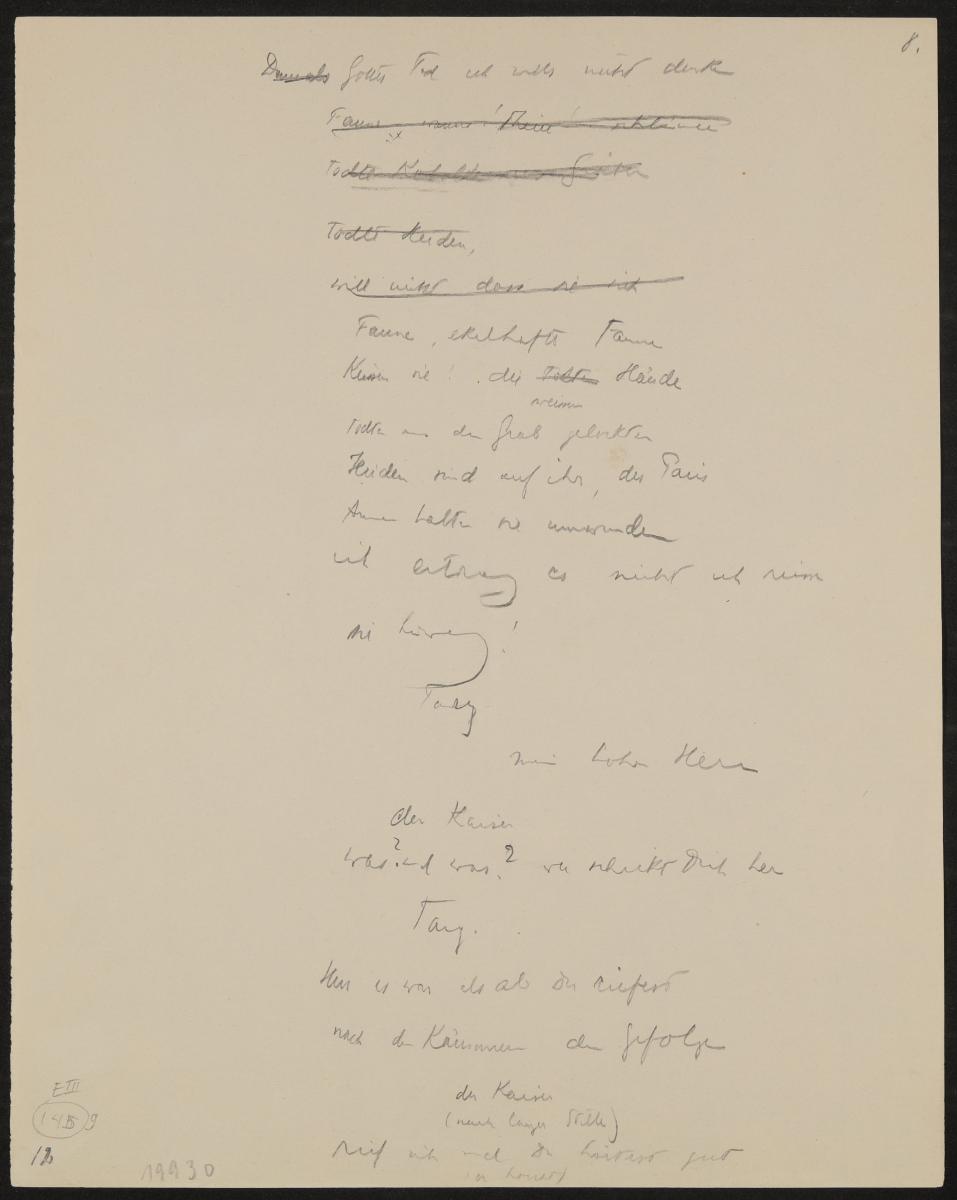 8.
Damals Gottes Tod ich wills nicht denken
Faune
Todte Kobolde
Todte Heiden,
will nicht dass sie sich
Faune, ekelhafte Faune
Küssen sie! die Todten Hände
weissen
Todten aus dem Grab gelockten
Heiden sind auf ihr, des Paris
Arme halten sie umwunden
ich ertrag es nicht ich reisse
sie hinweg!
Tarq
mein hoher Herr
der Kaiser
was? und was? wer schickt Dich her
Tarq.
Herr es war als ob Du riefest
nach den Kämmerern dem Gefolge
der Kaiser
(nach langer Stille)
Rief ich und Du hörtest gut
E III
14B 9
12
19930